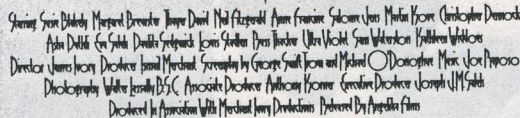 Starring Susan Blakely Margaret Brewster Thayer David Neil Fitzgerald Anne Francine Salome Jens Martin Kove Christopher
Asha Puthli Eva Saleh Paulita Sedgwick Louis Stadlen Russ Thacker Ultra Violet Sam Waterston Kathleen Widdoes
Director James Ivory Producer Ismail Merchant Screenplay by George Swift Trow and Michael O'Donoghue Music Joe Raposo
Photography Walter Lassally B.S.C. Associate Producer Anthony Korner Executive Producer Joseph J.M. Saleh
Produced In Association With Merchant Ivory Productions Released By Angelika Films